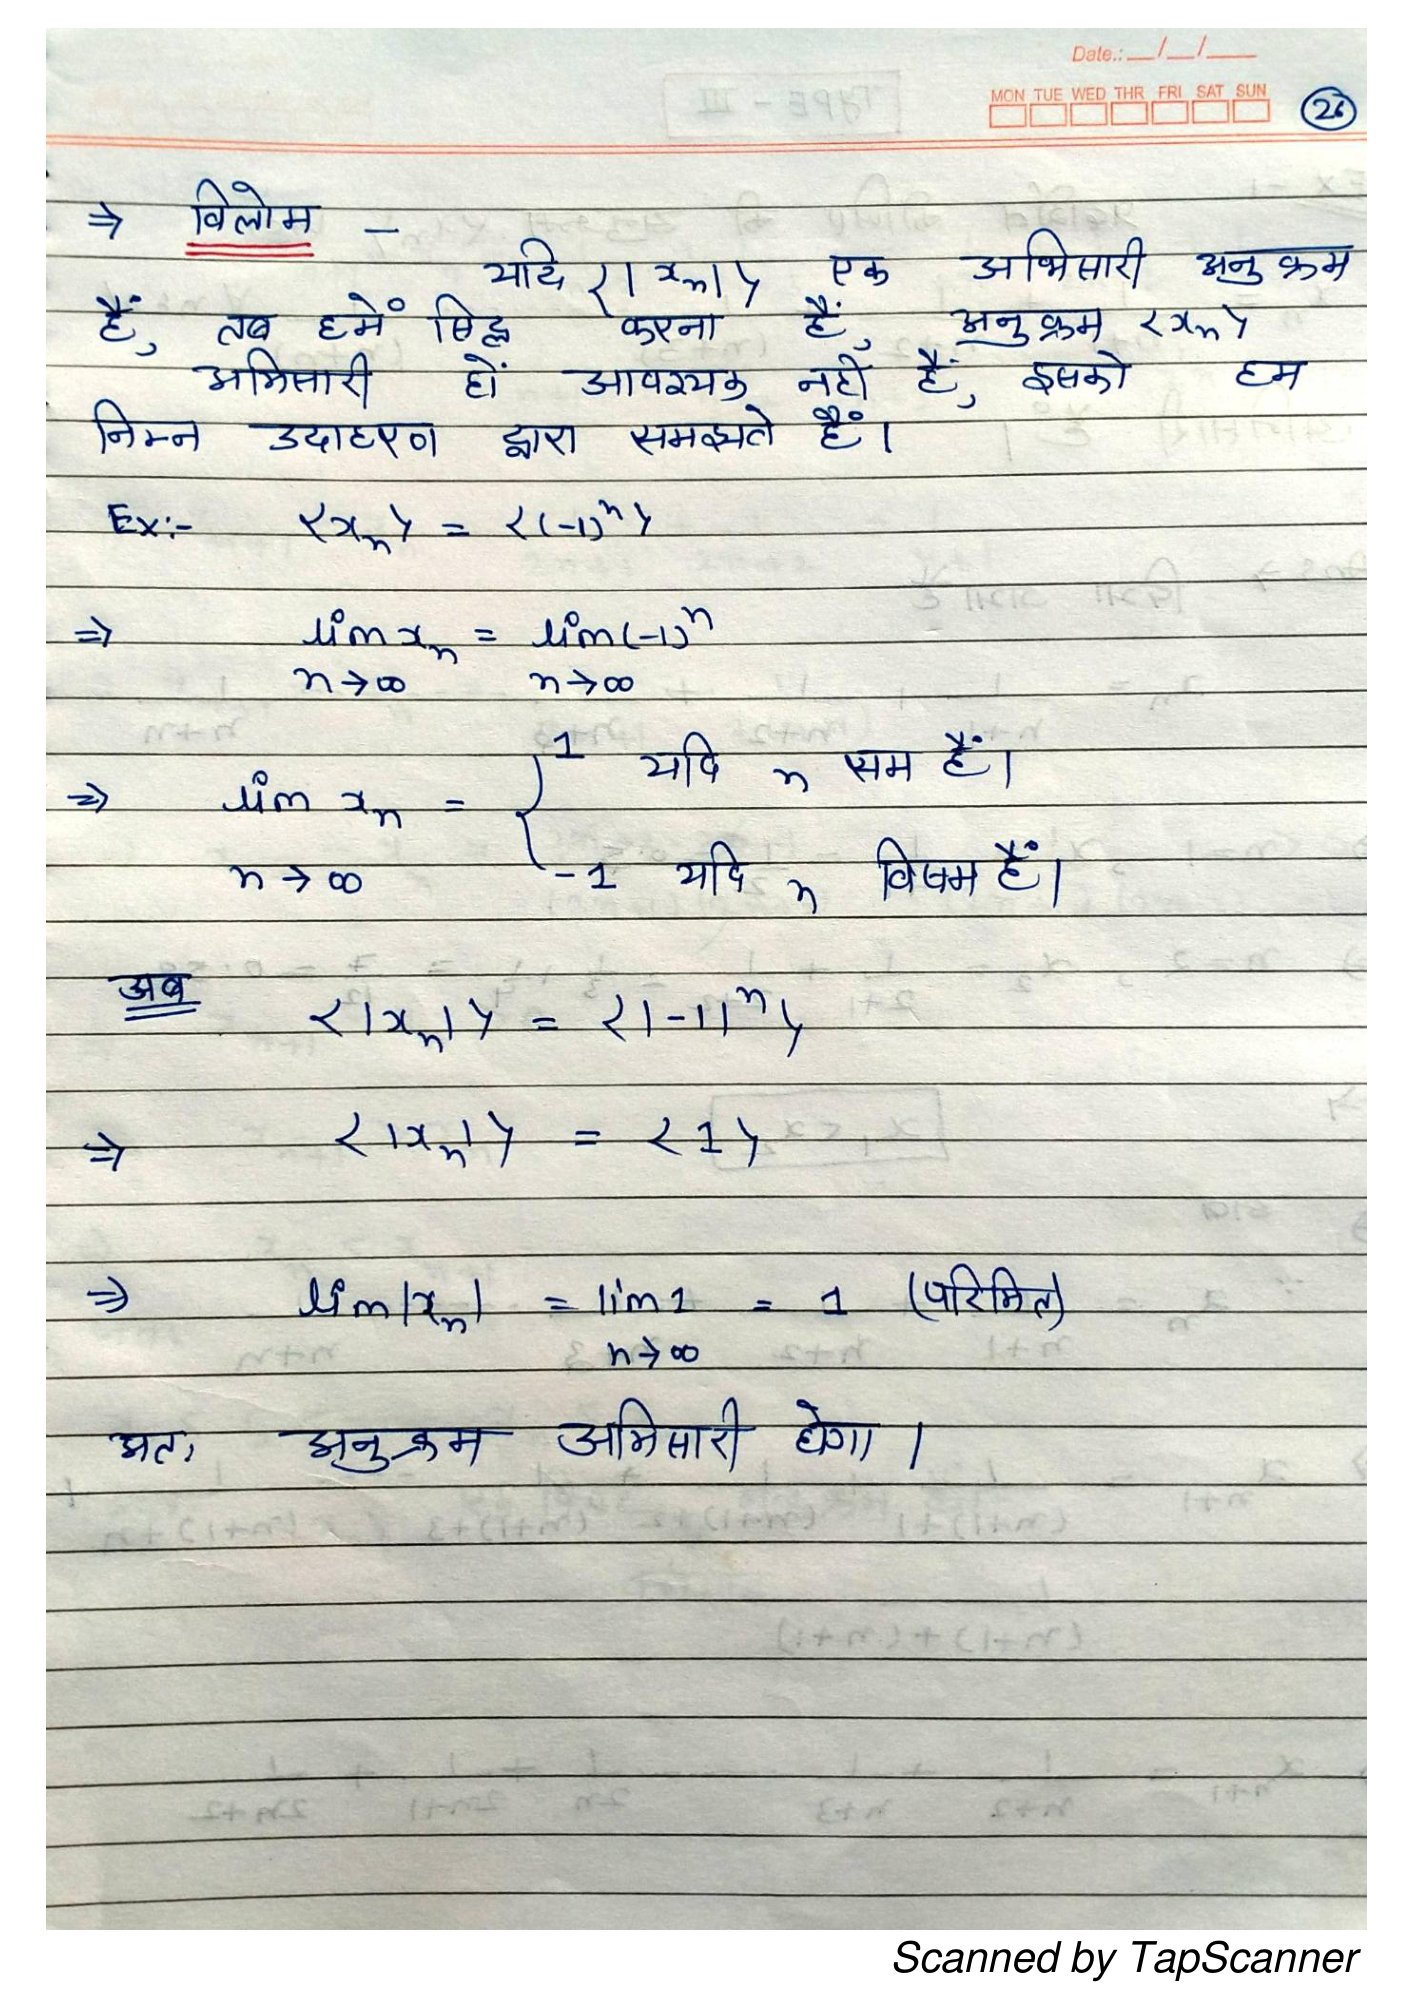 Date.: __/__/___
MON TUE WED THR FRI SAT SUN
26
⇒ विलोम -
यदि <|xₙ|> एक अभिसारी अनुक्रम
हैं, तब हमें सिद्ध करना हैं, अनुक्रम <xₙ>
अभिसारी हों आवश्यक नहीं हैं, इसको हम
निम्न उदाहरण द्वारा समझते हैं।
Ex:- <xₙ> = <(-1)ⁿ>
⇒ lim xₙ = lim (-1)ⁿ
n→∞ n→∞
1 यदि n सम हैं।
⇒ lim xₙ = {
n→∞ -1 यदि n विषम हैं।
अब <|xₙ|> = <|-1|ⁿ>
⇒ <|xₙ|> = <1>
⇒ lim|xₙ| = lim 1 = 1 (परिमित)
n→∞
अतः अनुक्रम अभिसारी होगा।
Scanned by TapScanner